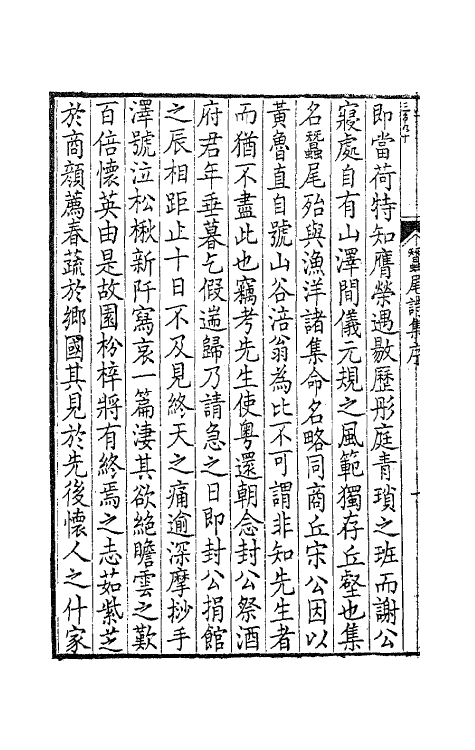 蠶尾詩集序
即當荷特知膺榮遇敭歷彤庭青瑣之班而謝公
寢處自有山澤間儀元規之風範獨存丘壑也集
名蠶尾殆與漁洋諸集命名略同商丘宋公因以
黃魯直自號山谷涪翁為比不可謂非知先生者
而猶不盡此也竊考先生使粵還朝念封公祭酒
府君年垂暮乞假遄歸乃請急之日即封公捐館
之辰相距止十日不及見終天之痛逾深摩挱手
澤號泣松楸新阡寫哀一篇淒其欲絕瞻雲之歎
百倍懷英由是故園枌梓將有終焉之志茹紫芝
於商顏薦春蔬於鄉國其見於先後懷人之什家